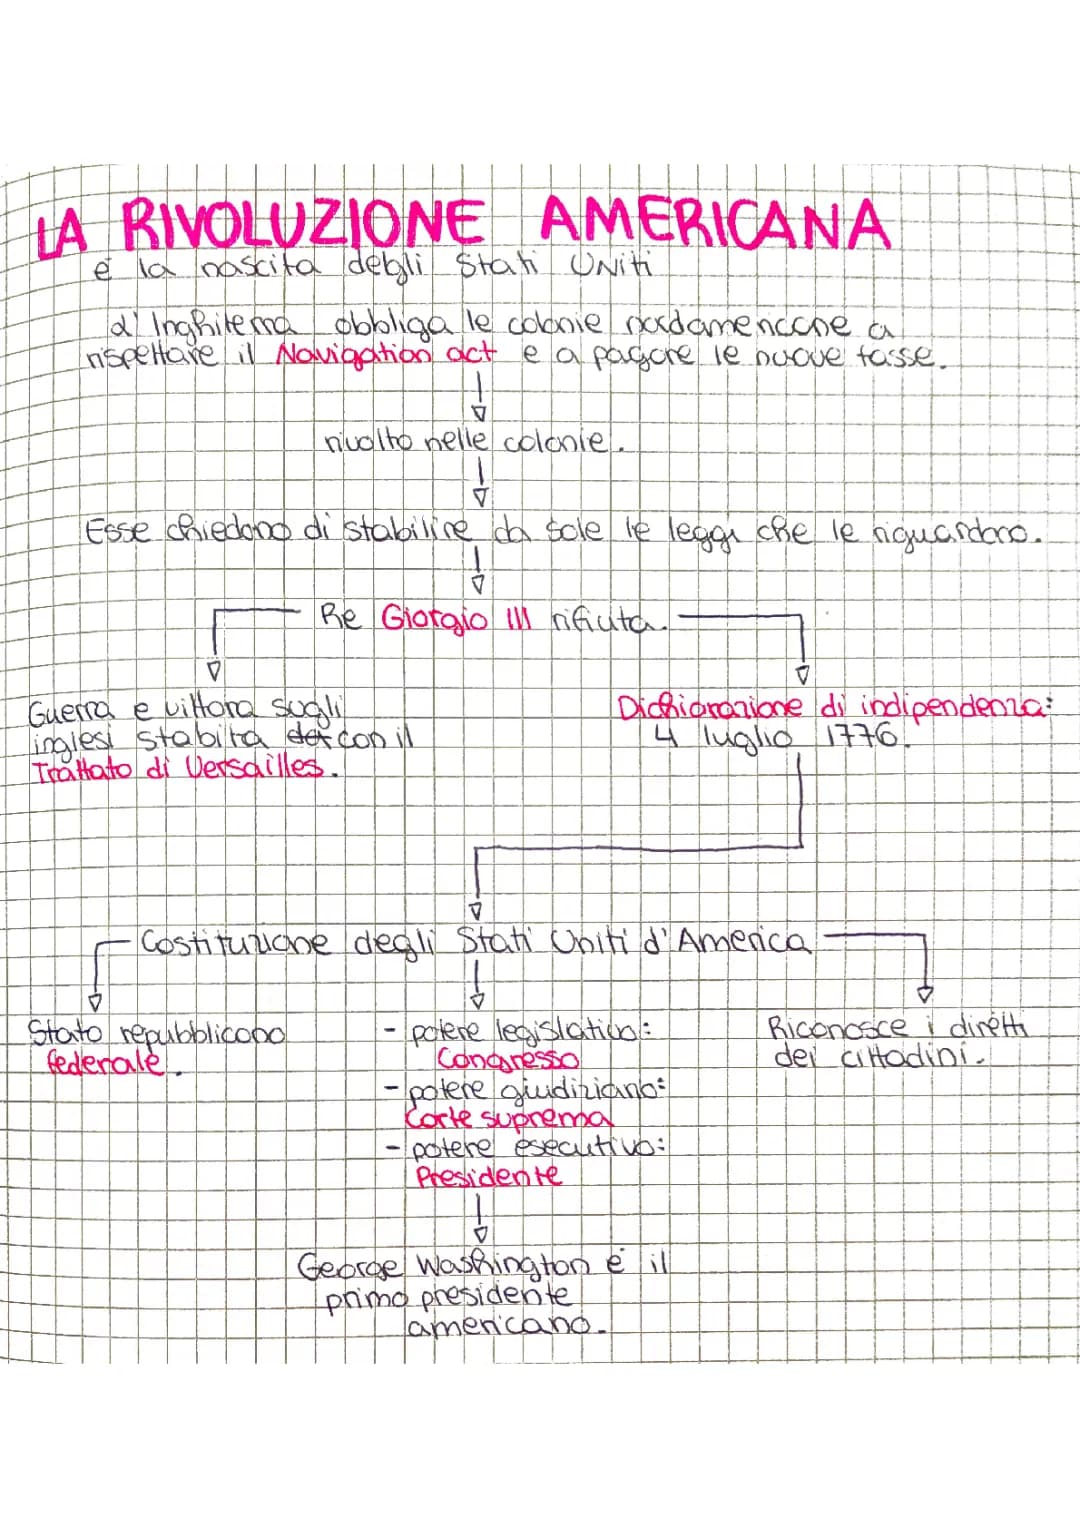 LA RIVOLUZIONE AMERICANA
e la nascita degli Stati Uniti
L'Inghilterra obbliga le colonie nordamericane a
rispettare il Navigation act e a pagare le nuove tasse.
rivolto nelle colonie.
Esse chiedono di stabilire da sole le leggi che le riguardano.
Re Giorgio III rifiuta.
Guerra e vittoria sugli
inglesi stabita con il
Trattato di Versailles.
Dichiarazione di indipendenza:
4 luglio 1776.
Costituzione degli Stati Uniti d'America
Stato repubblicano
federale.
- potere legislativo:
Congresso
- potere giudiziario:
Corte suprema
- potere esecutivo:
Presidente
Riconosce i diretti
dei cittadini.
George Washington è il
primo presidente
americano.